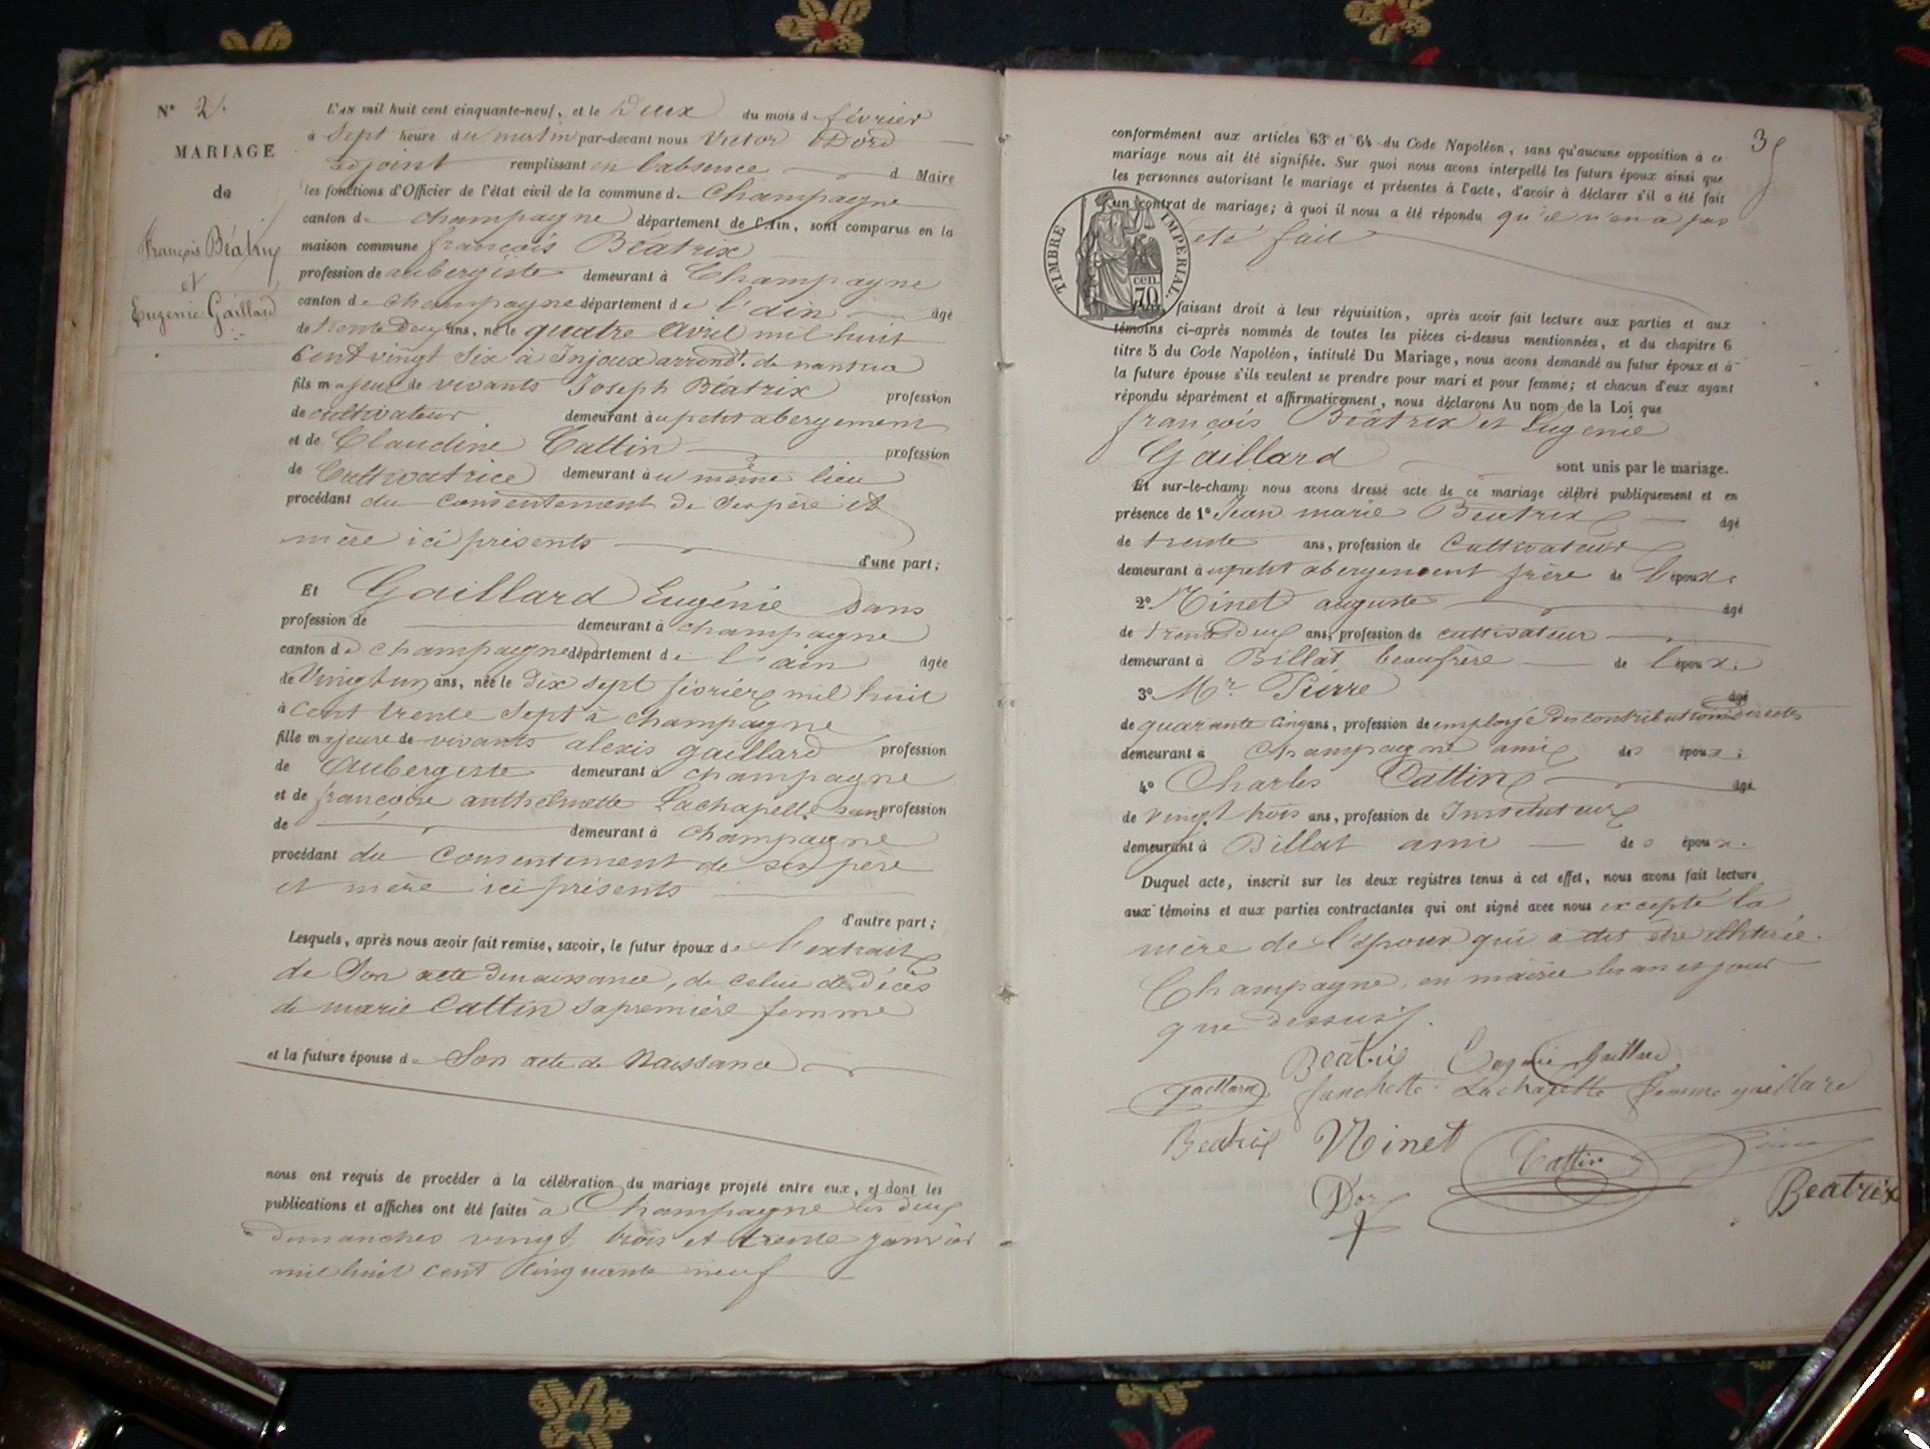 N° 2.
MARIAGE
de
François Béatrix
et
Eugénie Gaillard
L'an mil huit cent cinquante-neuf, et le Deux du mois de février
à Sept heure du matin par-devant nous Victor Dord
adjoint remplissant en l'absence d Maire
les fonctions d'Officier de l'état civil de la commune de Champagne
canton de champagne département de l'Ain, sont comparus en la
maison commune françois Béatrix
profession de aubergiste demeurant à Champagne
canton de champagne département de l'ain âgé
de trente Deux ans, né le quatre avril mil huit
Cent vingt Six à Injoux arrondt. de nantua
fils majeur de vivants Joseph Béatrix profession
de cultivateur demeurant au petit abergement
et de Claudine Cattin profession
de Cultivatrice demeurant au même lieu
procédant du consentement de ses père et
mère ici présents
d'une part;
Et Gaillard Eugénie Sans
profession de demeurant à champagne
canton de champagne département de l'ain âgée
de Vingt un ans, née le dix sept février mil huit
à cent trente sept à champagne
fille majeure de vivants alexis gaillard profession
de Aubergiste demeurant à champagne
et de françoise anthelmette Lachapelle Sans profession
de demeurant à champagne
procédant du Consentement de ses père
et mère ici présents
d'autre part;
Lesquels, après nous avoir fait remise, savoir, le futur époux de l'extrait
de Son acte de naissance, de celui de décès
de marie Cattin sa première femme
et la future épouse de Son acte de Naissance
nous ont requis de procéder à la célébration du mariage projeté entre eux, et dont les
publications et affiches ont été faites à Champagne les deux
dimanches vingt trois et trente janvier
mil huit cent cinquante neuf
3
conformément aux articles 63 et 64 du Code Napoléon, sans qu'aucune opposition à ce
mariage nous ait été signifiée. Sur quoi nous avons interpellé les futurs époux ainsi que
les personnes autorisant le mariage et présentes à l'acte, d'avoir à déclarer s'il a été fait
un contrat de mariage; à quoi il nous a été répondu qu'il n'en a pas
été fait
TIMBRE IMPÉRIAL.
cen.
70
faisant droit à leur réquisition, après avoir fait lecture aux parties et aux
témoins ci-après nommés de toutes les pièces ci-dessus mentionnées, et du chapitre 6
titre 5 du Code Napoléon, intitulé Du Mariage, nous avons demandé au futur époux et à
la future épouse s'ils veulent se prendre pour mari et pour femme; et chacun d'eux ayant
répondu séparément et affirmativement, nous déclarons Au nom de la Loi que
françois Béatrix et Eugénie
Gaillard sont unis par le mariage.
Et sur-le-champ nous avons dressé acte de ce mariage célébré publiquement et en
présence de 1° Jean marie Béatrix âgé
de trente ans, profession de Cultivateur
demeurant au petit abergement frère de l'époux.
2° Ninet auguste âgé
de trente Deux ans, profession de cultivateur
demeurant à Billat, beaufrère de l'époux.
3° Mr. Pierre âgé
de quarante cinq ans, profession de employé des contributions directes
demeurant à Champagne ami des époux;
4° Charles Cattin âgé
de vingt trois ans, profession de Instituteur
demeurant à Billat ami des époux.
Duquel acte, inscrit sur les deux registres tenus à cet effet, nous avons fait lecture
aux témoins et aux parties contractantes qui ont signé avec nous excepté la
mère de l'époux qui a dit être illitérée.
Champagne, en mairie les an et jour
que dessus.
Béatrix Eugénie Gaillard
Gaillard fanchette Lachapelle femme gaillard
Béatrix Ninet Cattin
Dord Beatrix